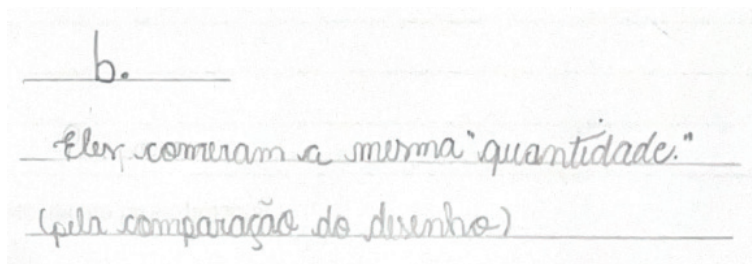 b.
Eles comeram a mesma "quantidade."
(pela comparação do desenho)